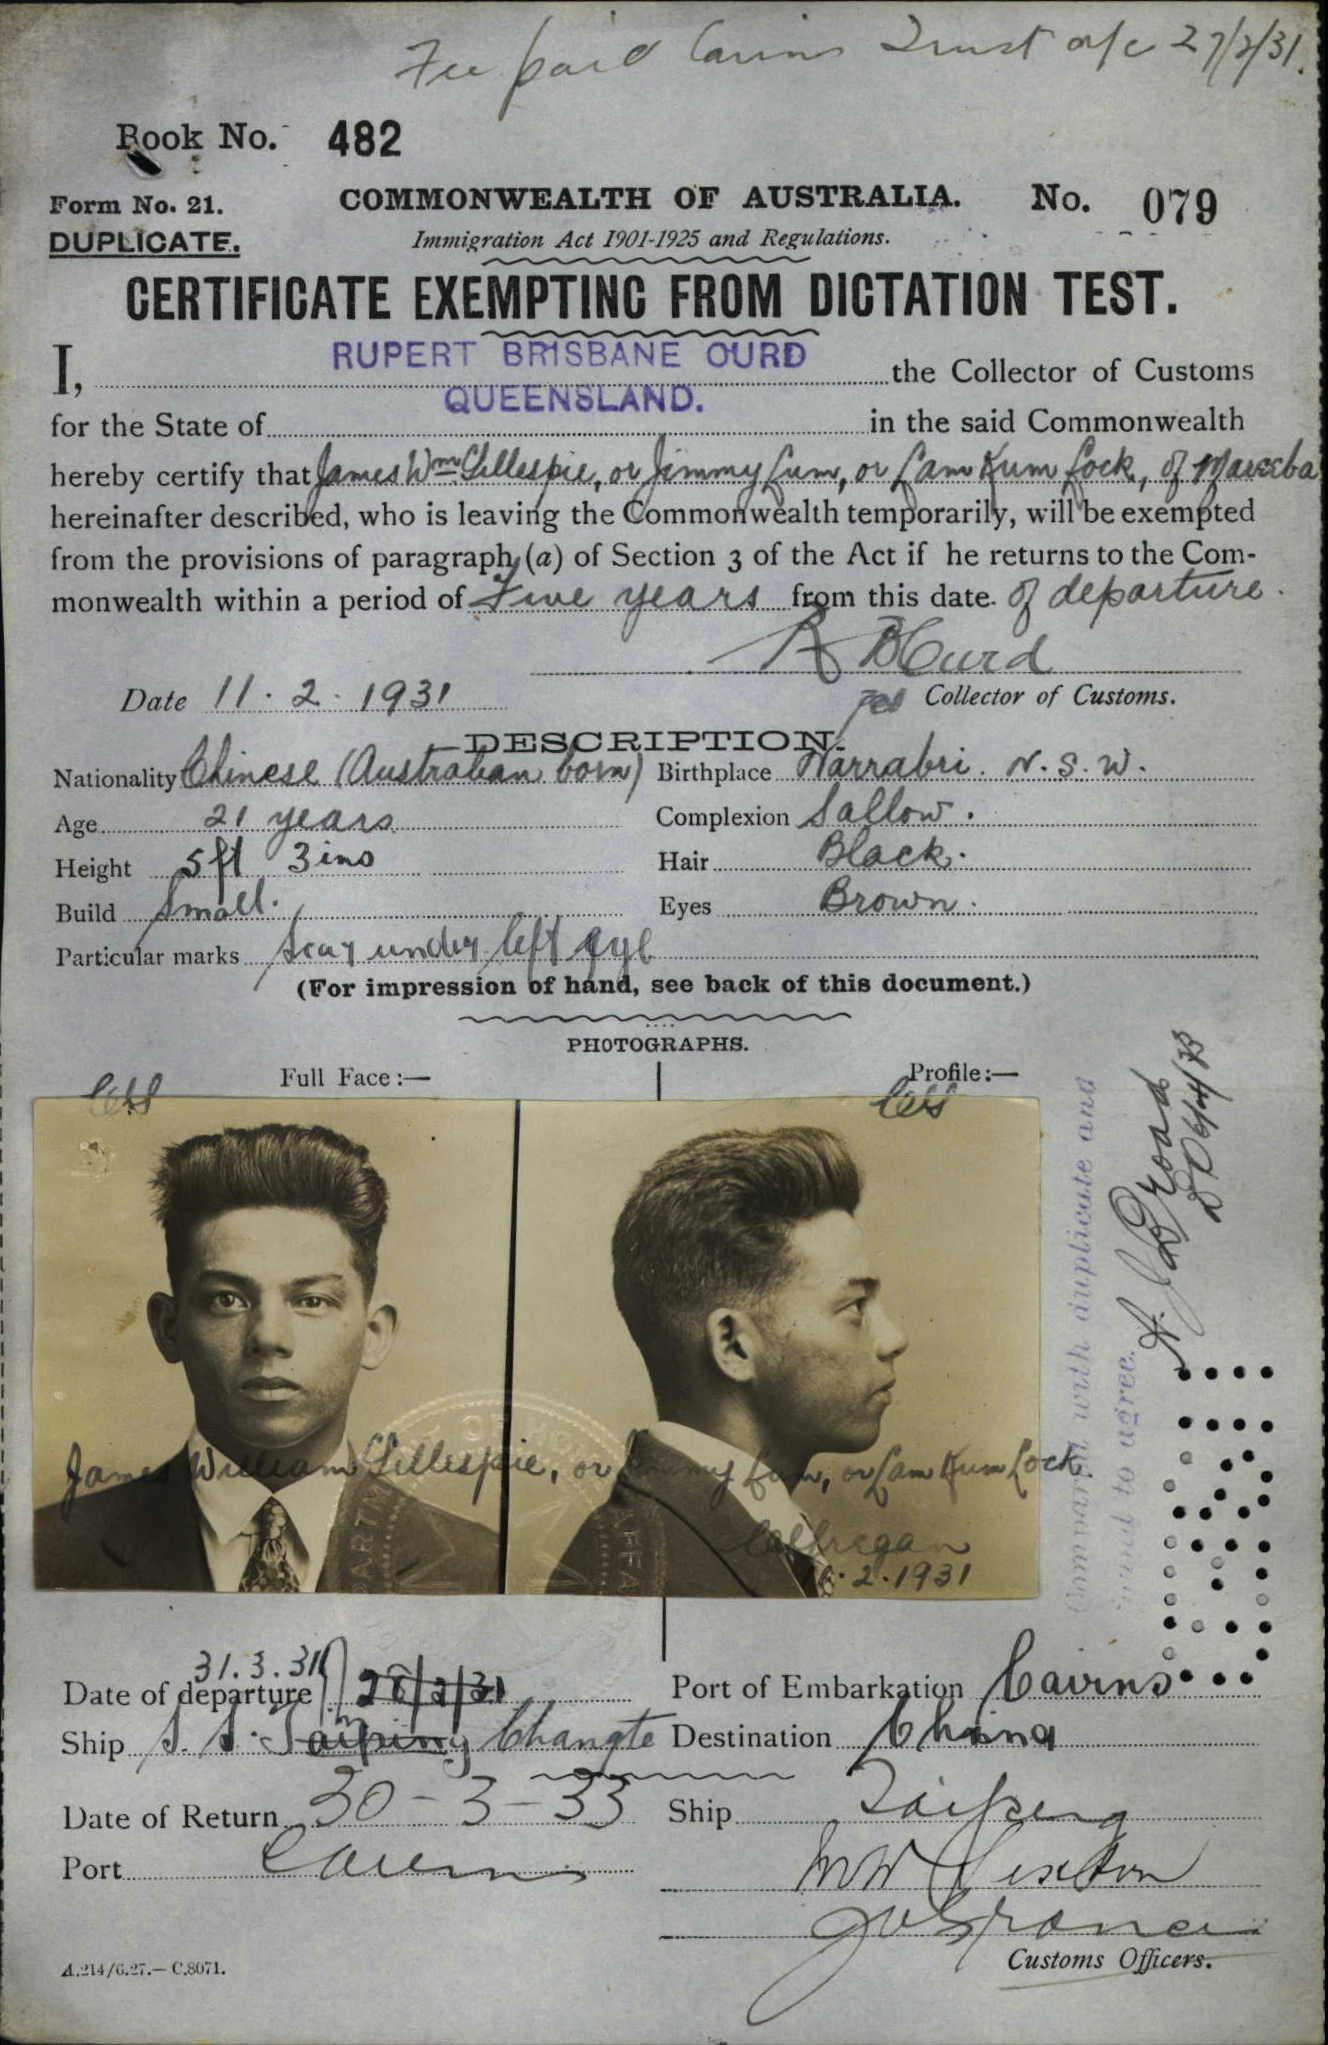 Fee paid Cairns Trust a/c 27/2/31.
Book No. 482
Form No. 21. COMMONWEALTH OF AUSTRALIA. No. 079
DUPLICATE. Immigration Act 1901-1925 and Regulations.
CERTIFICATE EXEMPTING FROM DICTATION TEST.
I, RUPERT BRISBANE CURD the Collector of Customs
for the State of QUEENSLAND. in the said Commonwealth
hereby certify that James Wm Gillespie, or Jimmy Lum, or Lam Kum Lock, of Mareeba
hereinafter described, who is leaving the Commonwealth temporarily, will be exempted
from the provisions of paragraph (a) of Section 3 of the Act if he returns to the Com-
monwealth within a period of Five years from this date. of departure.
R B Curd
Date 11.2.1931 Collector of Customs.
DESCRIPTION.
Nationality Chinese (Australian born) Birthplace Narrabri. N.S.W.
Age 21 years Complexion Sallow.
Height 5ft 3ins Hair Black.
Build Small. Eyes Brown.
Particular marks Scar under left eye
(For impression of hand, see back of this document.)
PHOTOGRAPHS.
Full Face:— Profile:—
James William Gillespie, or Jimmy Lum, or Lam Kum Lock.
.2.1931
Compared with duplicate and
found to agree.
Date of departure 31.3.31 28/2/31 Port of Embarkation Cairns
Ship S.S. Taiping Changte Destination China
Date of Return 30-3-33 Ship Taiping
Port Cairns
Customs Officers.
A.214/6.27.—C.8071.